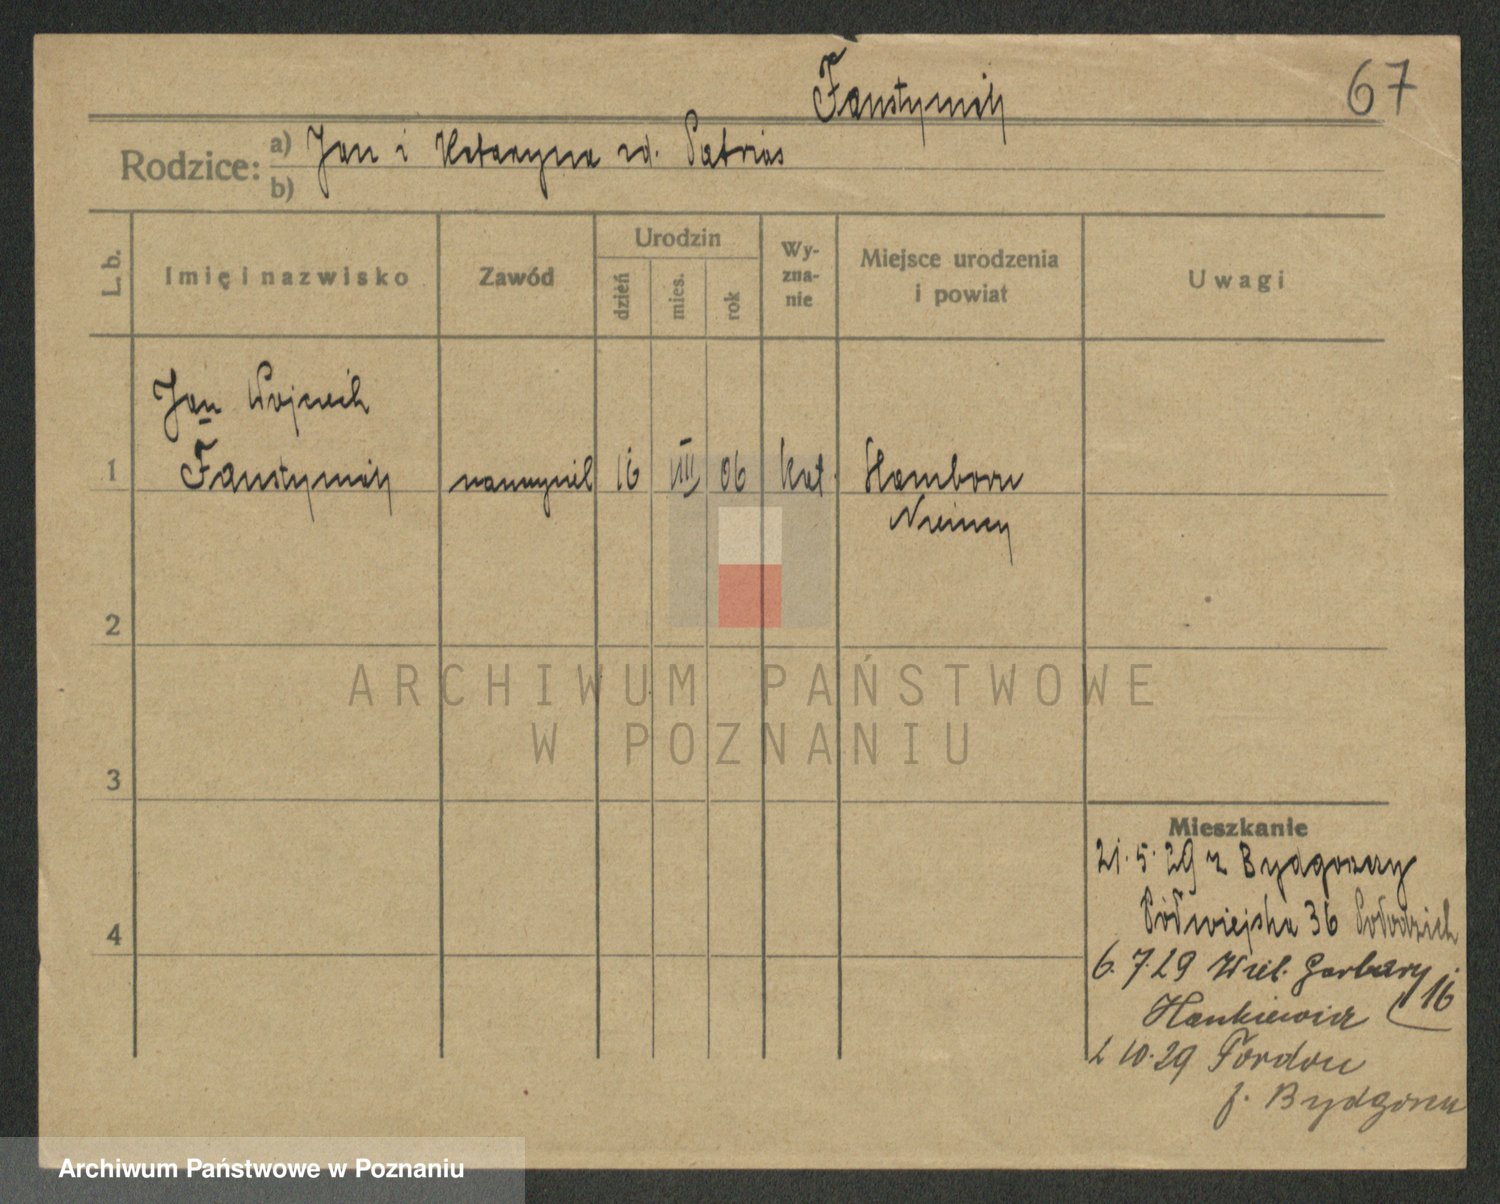 Faustyniak
67
Rodzice:
a) Jan i Katarzyna zd. Patrias
b)
L. b.
Imię i nazwisko
Zawód
Urodzin
dzień
mies.
rok
Wy-
zna-
nie
Miejsce urodzenia
i powiat
Uwagi
Jan Wojciech
1 Faustyniak nauczyciel 16 VIII 06 kat. Hamborn
Niemcy
2
3
4
ARCHIWUM PAŃSTWOWE
W POZNANIU
Mieszkanie
21.5.29 z Bydgoszczy
Półwiejska 36
6.7.29 Wiel. Garbary 16
Hankiewicz
2 10.29 Fordon
p. Bydgoszcz
Archiwum Państwowe w Poznaniu